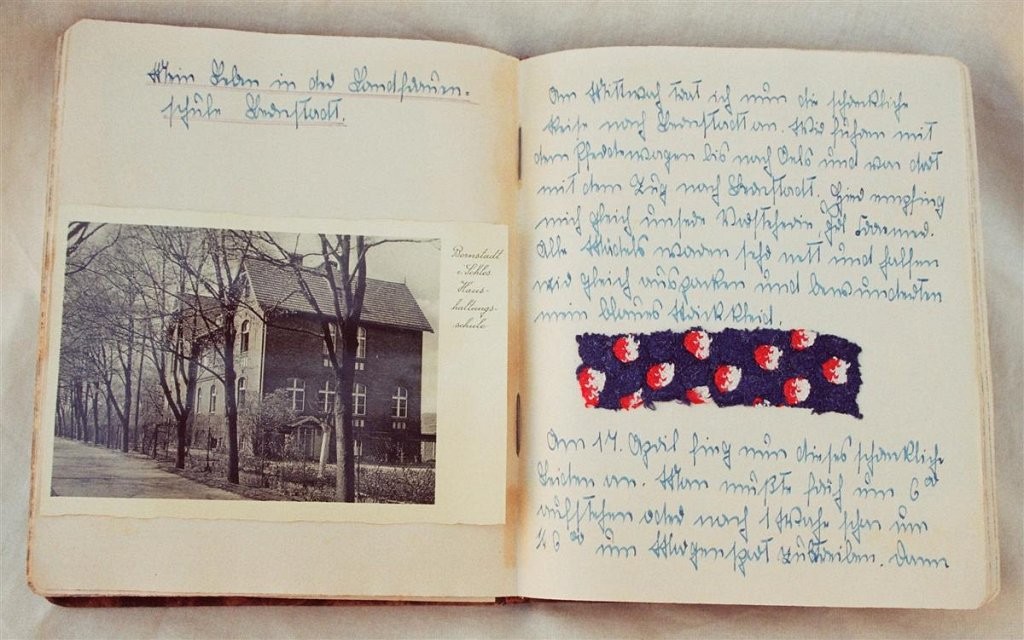 Mein Leben in der Landfrauen-
schule Bernstadt.
Bernstadt
i. Schles.
Haus-
haltungs-
schule
Am Mittwoch trat ich nun die schreckliche
Reise nach Bernstadt an. Wir fuhren mit
dem Pferdewagen bis nach Oels und von dort
mit dem Zug nach Bernstadt. Hier empfing
mich gleich unsere Vorsteherin, Frl.
Alle Mädels waren sehr nett und halfen
mir gleich auspacken und bewunderten
mein blaues Kleid.
Am 17. April fing nun dieses schreckliche
Leiden an. Man mußte früh um 6 00
aufstehen oder nach 1 Woche schon um
um Morgensport zu treiben. Dann